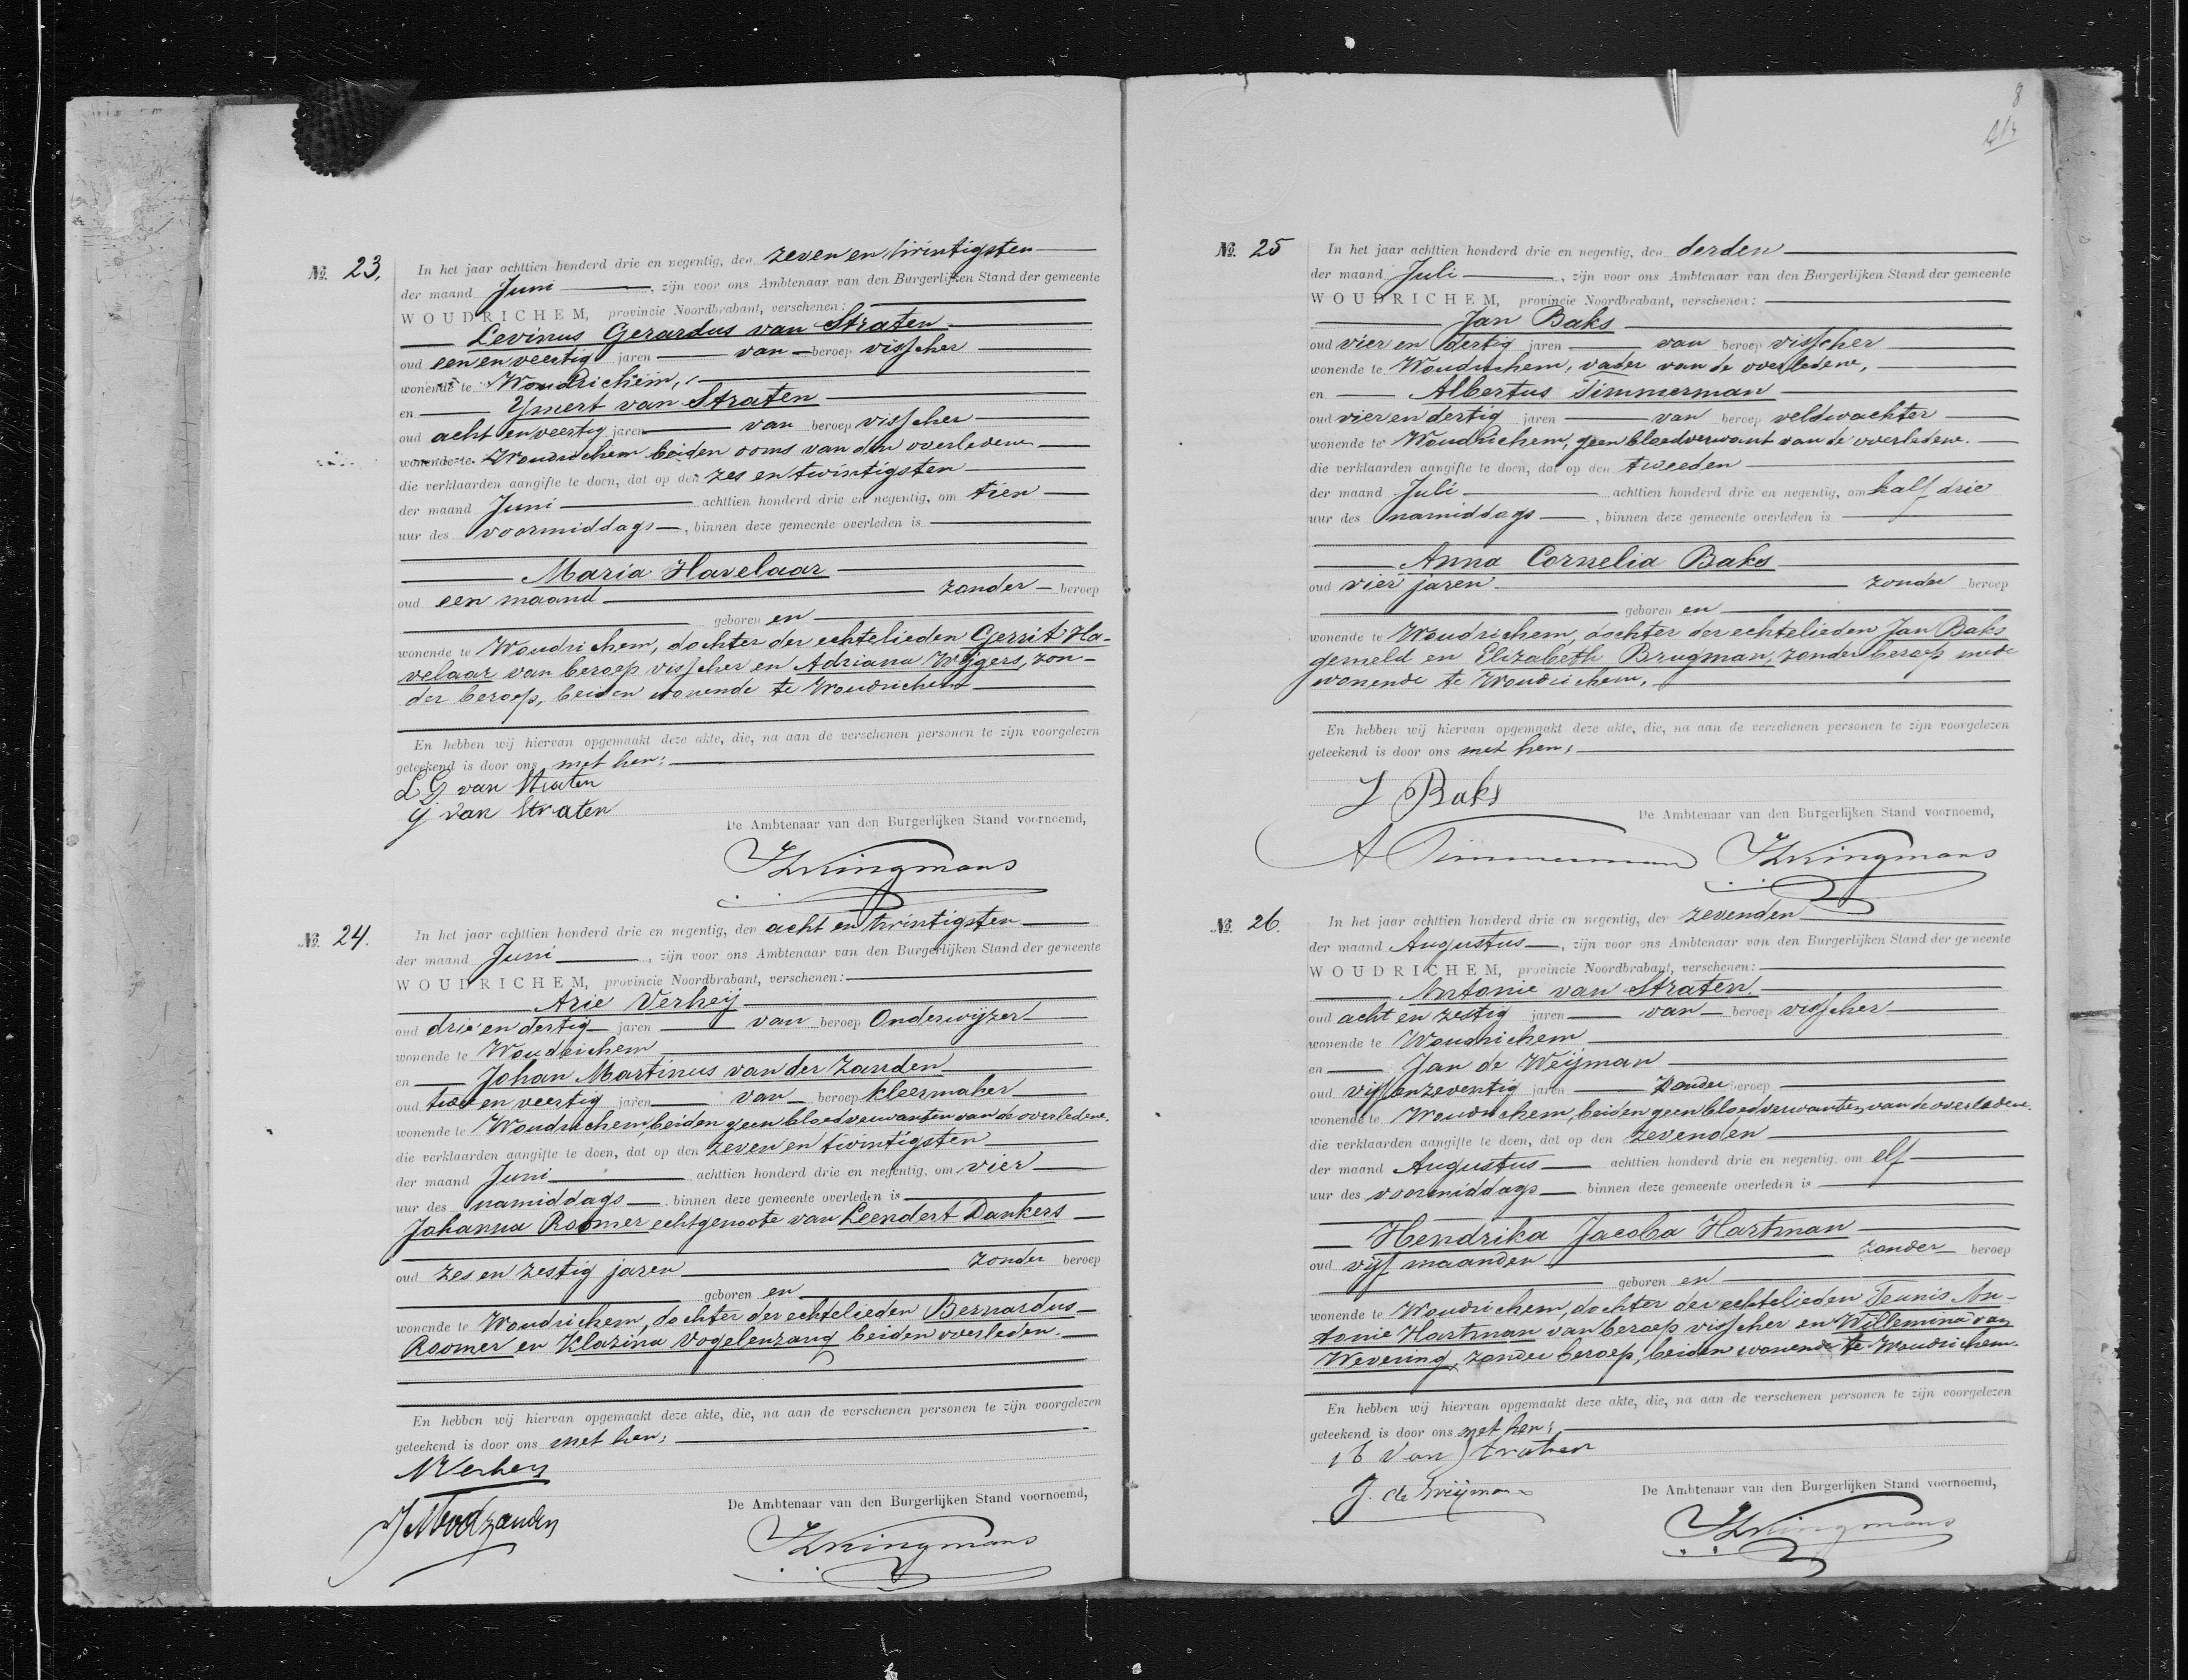 8
No. 23.
In het jaar achttien honderd drie en negentig, den zeven en twintigsten
der maand Juni, zijn voor ons Ambtenaar van den Burgerlijken Stand der gemeente
WOUDRICHEM, provincie Noordbrabant, verschenen:
Levinus Gerardus van Straten
oud een en veertig jaren van beroep visscher
wonende te Woudrichem,
en Ymert van Straten
oud acht en veertig jaren van beroep visscher
wonende te Woudrichem beiden ooms van den overledene
die verklaarden aangifte te doen, dat op den zes en twintigsten
der maand Juni achttien honderd drie en negentig, om tien
uur des voormiddags, binnen deze gemeente overleden is
Maria Havelaar
oud een maand zonder beroep
geboren en
wonende te Woudrichem, dochter der echtelieden Gerrit Ha-
velaar van beroep visscher en Adriana Wijgers, zon-
der beroep, beiden wonende te Woudrichem
En hebben wij hiervan opgemaakt deze akte, die, na aan de verschenen personen te zijn voorgelezen
geteekend is door ons met hen;
L G van Straten
Y van Straten
De Ambtenaar van den Burgerlijken Stand voornoemd,
Kningmans
No. 24.
In het jaar achttien honderd drie en negentig, den acht en twintigsten
der maand Juni, zijn voor ons Ambtenaar van den Burgerlijken Stand der gemeente
WOUDRICHEM, provincie Noordbrabant, verschenen:
Arie Verheij
oud drie en dertig jaren van beroep Onderwijzer
wonende te Woudrichem
en Johan Martinus van der Zanden
oud twee en veertig jaren van beroep kleermaker
wonende te Woudrichem, beiden geen bloedverwanten van de overledene.
die verklaarden aangifte te doen, dat op den zeven en twintigsten
der maand Juni achttien honderd drie en negentig, om vier
uur des namiddags binnen deze gemeente overleden is
Johanna Roomer echtgenoote van Leendert Dankers
oud zes en zestig jaren zonder beroep
geboren en
wonende te Woudrichem, dochter der echtelieden Bernardus
Roomer en Klazina Vogelenzang beiden overleden.
En hebben wij hiervan opgemaakt deze akte, die, na aan de verschenen personen te zijn voorgelezen
geteekend is door ons met hen;
A Verheij
J M vd Zanden
De Ambtenaar van den Burgerlijken Stand voornoemd,
Kningmans
No. 25
In het jaar achttien honderd drie en negentig, den derden
der maand Juli, zijn voor ons Ambtenaar van den Burgerlijken Stand der gemeente
WOUDRICHEM, provincie Noordbrabant, verschenen:
Jan Baks
oud vier en dertig jaren van beroep visscher
wonende te Woudrichem, vader van de overledene,
en Albertus Timmerman
oud vier en dertig jaren van beroep veldwachter
wonende te Woudrichem, geen bloedverwant van de overledene.
die verklaarden aangifte te doen, dat op den tweeden
der maand Juli achttien honderd drie en negentig, om half drie
uur des namiddags, binnen deze gemeente overleden is
Anna Cornelia Baks
oud vier jaren zonder beroep
geboren en
wonende te Woudrichem, dochter der echtelieden Jan Baks
gemeld en Elizabeth Brugman, zonder beroep mede
wonende te Woudrichem.
En hebben wij hiervan opgemaakt deze akte, die, na aan de verschenen personen te zijn voorgelezen
geteekend is door ons met hen;
J Baks
De Ambtenaar van den Burgerlijken Stand voornoemd,
A Timmerman Kningmans
No. 26.
In het jaar achttien honderd drie en negentig, den zevenden
der maand Augustus, zijn voor ons Ambtenaar van den Burgerlijken Stand der gemeente
WOUDRICHEM, provincie Noordbrabant, verschenen:
Antonie van Straten
oud acht en zestig jaren van beroep visscher
wonende te Woudrichem
en Jan de Weijman
oud vijf en zeventig jaren zonder beroep
wonende te Woudrichem, beiden geen bloedverwanten van de overledene.
die verklaarden aangifte te doen, dat op den zevenden
der maand Augustus achttien honderd drie en negentig, om elf
uur des voormiddags binnen deze gemeente overleden is
Hendrika Jacoba Hartman
oud vijf maanden zonder beroep
geboren en
wonende te Woudrichem, dochter der echtelieden Teunis An-
tonie Hartman van beroep visscher en Willemina van
Wevering, zonder beroep, beiden wonende te Woudrichem.
En hebben wij hiervan opgemaakt deze akte, die, na aan de verschenen personen te zijn voorgelezen
geteekend is door ons met hen;
van Straten
J. de Weijman
De Ambtenaar van den Burgerlijken Stand voornoemd,
Kningmans